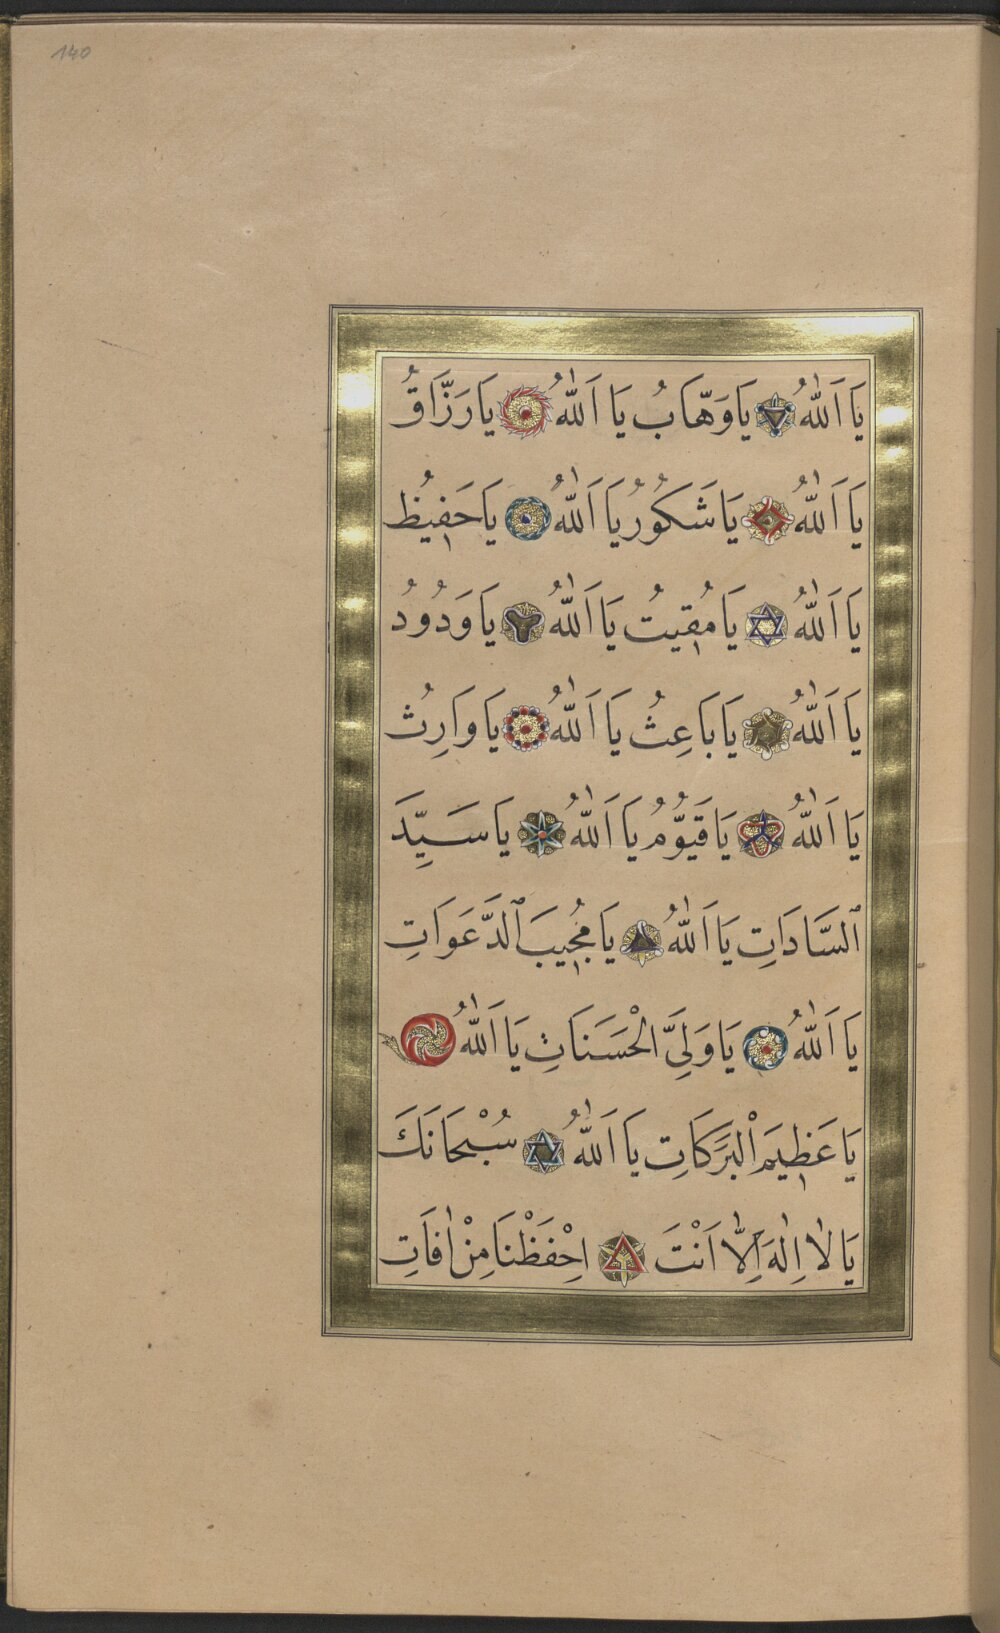 140
يَا اَللّٰهُ يَا وَهَّابُ يَا اَللّٰهُ يَا رَزَّاقُ
يَا اَللّٰهُ يَا شَكُورُ يَا اَللّٰهُ يَا حَفٖيظُ
يَا اَللّٰهُ يَا مُقٖيتُ يَا اَللّٰهُ يَا وَدُودُ
يَا اَللّٰهُ يَا بَاعِثُ يَا اَللّٰهُ يَا وَارِثُ
يَا اَللّٰهُ يَا قَيُّومُ يَا اَللّٰهُ يَا سَيِّدَ
ٱلسَّادَاتِ يَا اَللّٰهُ يَا مُجٖيبَ ٱلدَّعَوَاتِ
يَا اَللّٰهُ يَا وَلِىَّ الْحَسَنَاتِ يَا اَللّٰهُ
يَا عَظٖيمَ ٱلْبَرَكَاتِ يَا اَللّٰهُ سُبْحَانَكَ
يَا لٰا اِلٰهَ اِلَّا اَنْتَ اِحْفَظْنَا مِنْ اٰفَاتِ